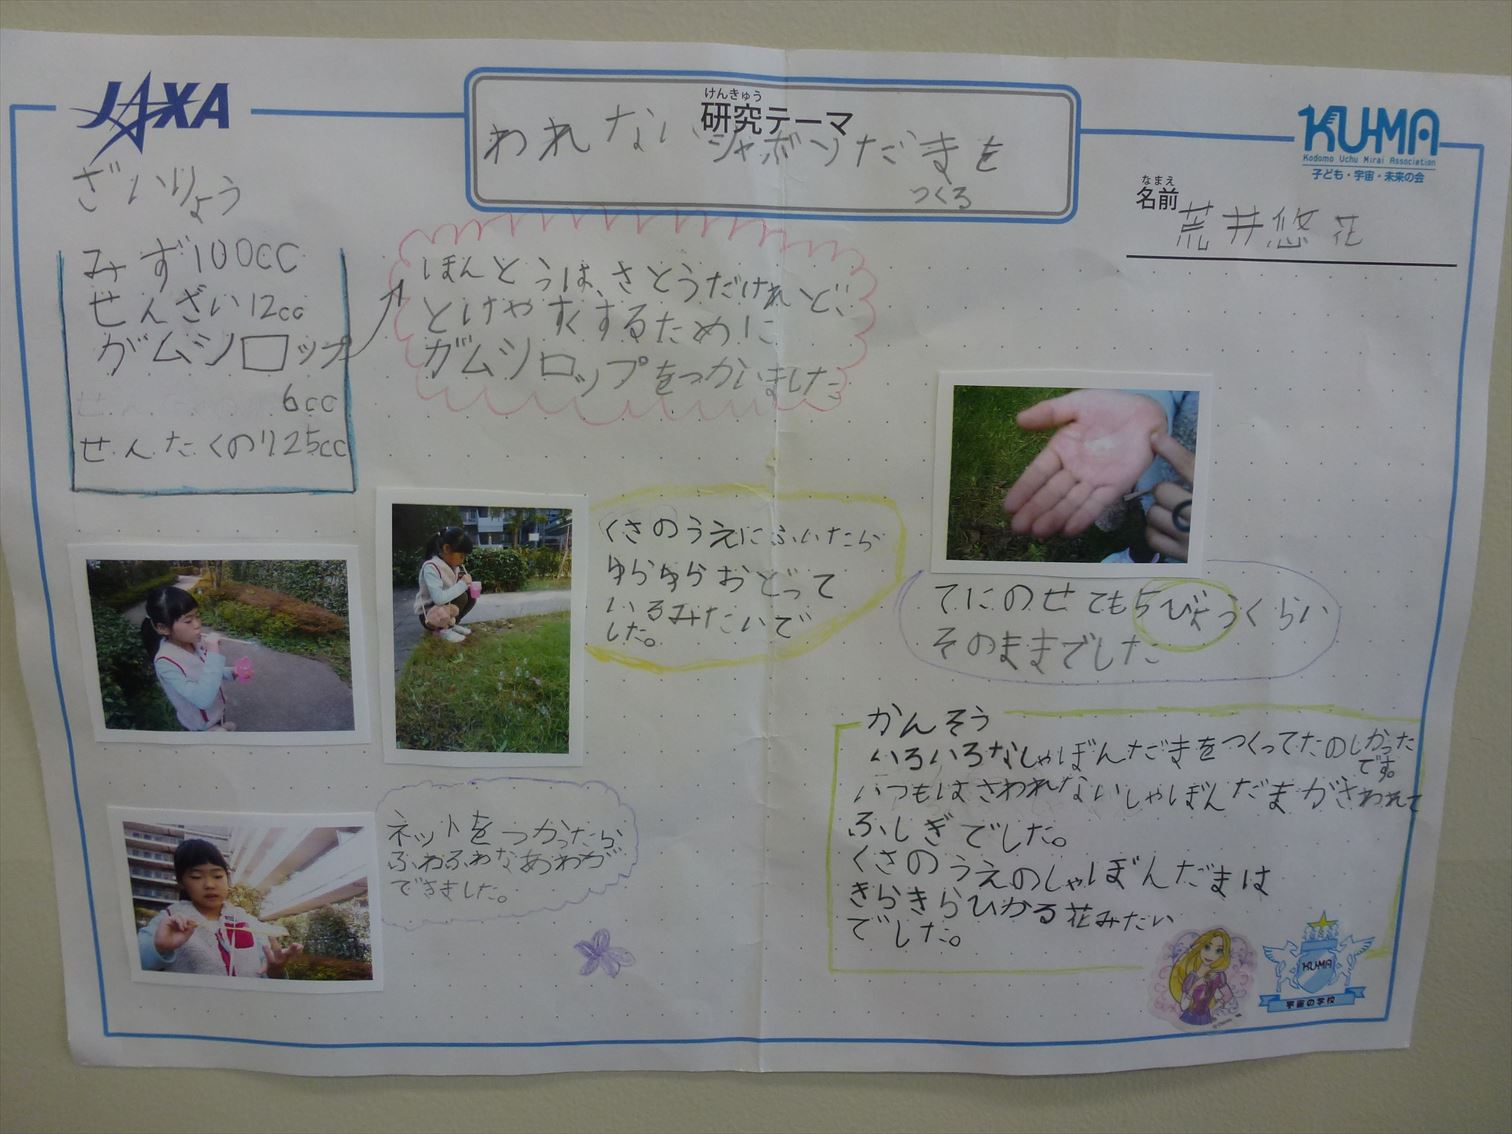 JAXA
けんきゅう
研究テーマ
われないシャボンだまを
つくる
KU-MA
Kodomo Uchu Mirai Association
子ども・宇宙・未来の会
なまえ
名前
荒井悠花
ざいりょう
みず100cc
せんざい12cc
ガムシロップ
6cc
せんたくのり25cc
ほんとうは、さとうだけれど、
とけやすくするために
ガムシロップをつかいました
くさのうえにふいたら
ゆらゆらおどって
いるみたいで
した。
てにのせても5びょうくらい
そのままでした
ネットをつかったら
ふわふわなあわが
できました。
かんそう
いろいろなしゃぼんだまをつくってたのしかった
です。
いつもはさわれないしゃぼんだまがさわれて
ふしぎでした。
くさのうえのしゃぼんだまは
きらきらひかる花みたい
でした。
KU-MA
宇宙の学校